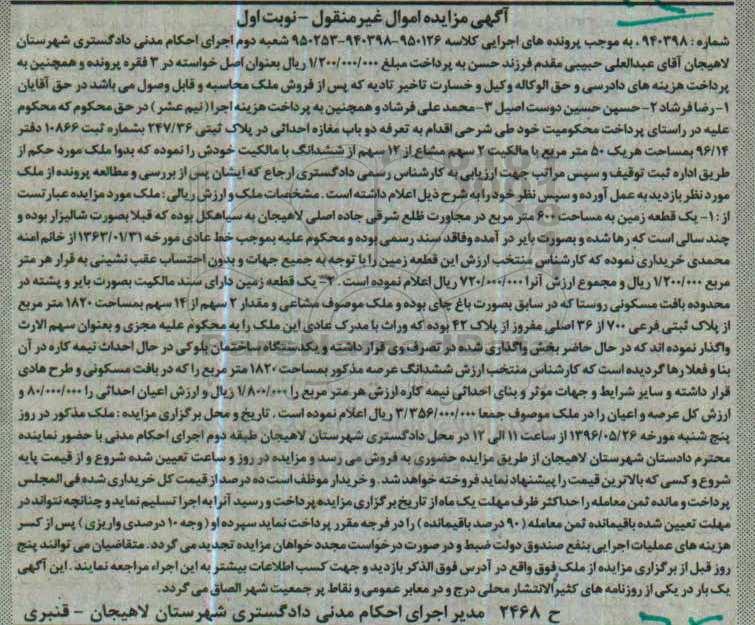 آگهی مزایده اموال غیر منقول - نوبت اول
شماره : ۹۴۰۳۹۸ ، به موجب پرونده های اجرایی کلاسه ۹۵۰۱۲۶-۹۴۰۳۹۸-۹۵۰۲۵۳ شعبه دوم اجرای احکام مدنی دادگستری شهرستان
لاهیجان آقای عبدالعلی حبیبی مقدم فرزند حسن به پرداخت مبلغ ۱/۲۰۰/۰۰۰/۰۰۰ ریال بعنوان اصل خواسته در ۳ فقره پرونده و همچنین به
پرداخت هزینه های دادرسی و حق الوکاله وکیل و خسارت تاخیر تادیه که پس از فروش ملک محاسبه و قابل وصول می باشد در حق آقایان
۱- رضا فرشاد ۲- حسین حسین دوست اصیل ۳- محمد علی فرشاد و همچنین به پرداخت هزینه اجرا (نیم عشر) در حق محکوم که محکوم
علیه در راستای پرداخت محکومیت خود طی شرحی اقدام به تعرفه دو باب مغازه احداثی در پلاک ثبتی ۲۴۷/۳۶ بشماره ثبت ۱۰۸۶۶ دفتر
۹۶/۱۴ بمساحت هریک ۵۰ متر مربع با مالکیت ۲ سهم مشاع از ۱۴ سهم از ششدانگ با مالکیت خودش را نموده که بدوا ملک مورد حکم از
طریق اداره ثبت توقیف و سپس مراتب جهت ارزیابی به کارشناس رسمی دادگستری ارجاع که ایشان پس از بررسی و مطالعه پرونده از ملک
مورد نظر بازدید به عمل آورده و سپس نظر خود را به شرح ذیل اعلام داشته است . مشخصات ملک و ارزش ریالی : ملک مورد مزایده عبارتست
از : ۱- یک قطعه زمین به مساحت ۶۰۰ متر مربع در مجاورت ظلع شرقی جاده اصلی لاهیجان به سیاهکل بوده که قبلا بصورت شالیزار بوده و
چند سالی است که رها شده و بصورت بایر در آمده و فاقد سند رسمی بوده و محکوم علیه بموجب خط عادی مورخه ۱۳۶۳/۰۱/۳۱ از خانم امنه
محمدی خریداری نموده که کارشناس منتخب ارزش این قطعه زمین را با توجه به جمیع جهات و بدون احتساب عقب نشینی به قرار هر متر
مربع ۱/۲۰۰/۰۰۰ ریال و مجموع ارزش آنرا ۷۲۰/۰۰۰/۰۰۰ ریال اعلام نموده است . ۲- یک قطعه زمین دارای سند مالکیت بصورت بایر و پشته در
محدوده بافت مسکونی روستا که در سابق بصورت باغ چای بوده و ملک موصوف مشاعی و مقدار ۲ سهم از ۱۴ سهم بمساحت ۱۸۲۰ متر مربع
از پلاک ثبتی فرعی ۷۰۰ از ۳۶ اصلی مفروز از پلاک ۴۲ بوده که وراث با مدرک عادی این ملک را به محکوم علیه مجزی و بعنوان سهم الارث
واگذار نموده اند که در حال حاضر بخش واگذاری شده در تصرف وی قرار داشته و یکدستگاه ساختمان بلوکی در حال احداث نیمه کاره در آن
بنا و فعلا رها گردیده است که کارشناس منتخب ارزش ششدانگ عرصه مذکور بمساحت ۱۸۲۰ متر مربع را که در بافت مسکونی و طرح هادی
قرار داشته و سایر شرایط و جهات موثر و بنای احداثی نیمه کاره ارزش هر متر مربع را ۱/۸۰۰/۰۰۰ ریال و ارزش اعیان احداثی را ۸۰/۰۰۰/۰۰۰ و
ارزش کل عرصه و اعیان را در ملک موصوف جمعا ۳/۳۵۶/۰۰۰/۰۰۰ ریال اعلام نموده است . تاریخ و محل برگزاری مزایده : ملک مذکور در روز
پنج شنبه مورخه ۱۳۹۶/۰۵/۲۶ از ساعت ۱۱ الی ۱۲ در محل دادگستری شهرستان لاهیجان طبقه دوم اجرای احکام مدنی با حضور نماینده
محترم دادستان شهرستان لاهیجان از طریق مزایده حضوری به فروش می رسد و مزایده در روز و ساعت تعیین شده شروع و از قیمت پایه
شروع و کسی که بالاترین قیمت را پیشنهاد نماید فروخته خواهد شد . و خریدار موظف است ده درصد از قیمت کل خریداری شده فی المجلس
پرداخت و مانده ثمن معامله را حداکثر ظرف مهلت یک ماه از تاریخ برگزاری مزایده پرداخت و رسید آنرا به اجرا تسلیم نماید و چنانچه نتواند در
مهلت تعیین شده باقیمانده ثمن معامله ( ۹۰ درصد باقیمانده ) را در فرجه مقرر پرداخت نماید سپرده او ( وجه ۱۰ درصدی واریزی ) پس از کسر
هزینه های عملیات اجرایی بنفع صندوق دولت ضبط و در صورت درخواست مجدد خواهان مزایده تجدید می گردد . متقاضیان می توانند پنج
روز قبل از برگزاری مزایده از ملک فوق واقع در آدرس فوق الذکر بازدید و جهت کسب اطلاعات بیشتر به این اجراء مراجعه نمایند . این آگهی
یک بار در یکی از روزنامه های کثیرالانتشار محلی درج و در معابر عمومی و نقاط پر جمعیت شهر الصاق می گردد .
ح ۲۴۶۸ مدیر اجرای احکام مدنی دادگستری شهرستان لاهیجان - قنبری